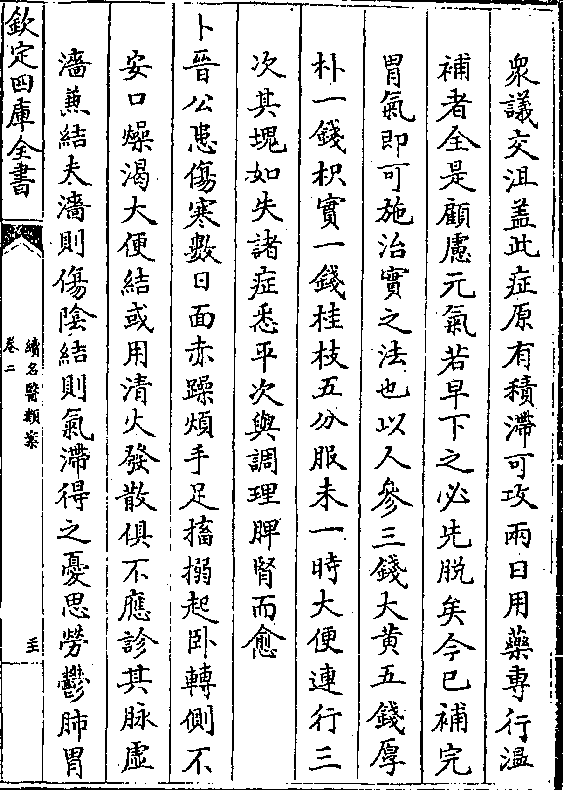 衆議交沮盖此症原有積滯可攻兩日用藥専行温
補者全是顧慮元氣若早下之必先脱矣今已補完
胃氣即可施治實之法也以人參三錢大黄五錢厚
朴一錢枳實一錢桂枝五分服未一時大便連行三
次其塊如失諸症悉平次與調理脾腎而愈
卜晉公患傷寒數日面赤躁煩手足搐搦起卧轉側不
安口燥渴大便結或用清火發散俱不應診其脉虚
濇兼結夫濇則傷陰結則氣滯得之憂思勞鬱肺胃
欽定四庫全書
續名醫類案
卷二